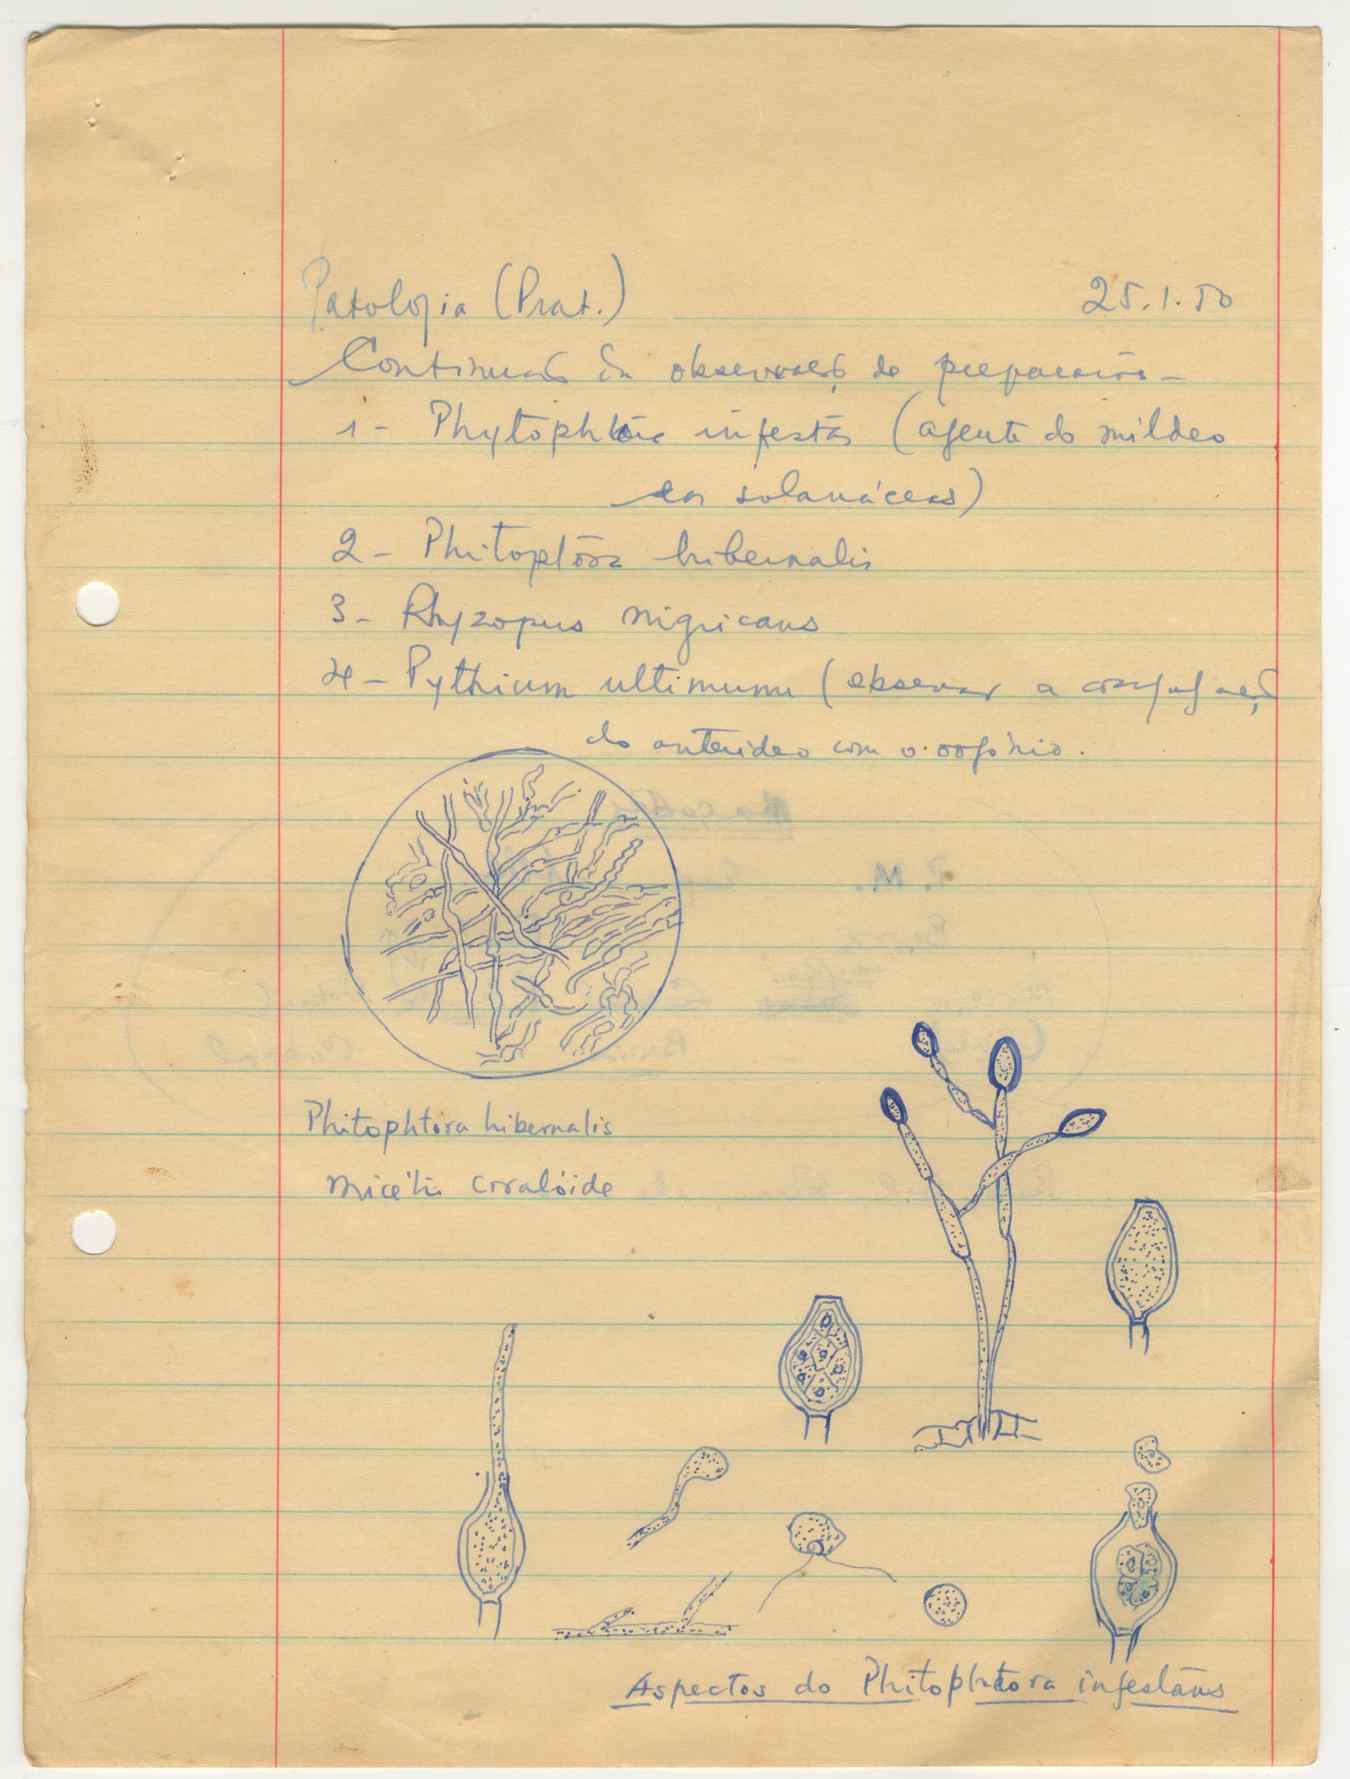 Patologia (Prat.) 25.1.50
Continuação da observação de preparações -
1 - Phytophtora infestãs (agente do mildeo
das solanáceas)
2 - Phitoptora hibernalis
3 - Rhyzopus nigricans
4 - Pythium ultimum (observar a conjugação
do anterideo com o oogónio.
Phitophtora hibernalis
micélio coralóide
Aspectos do Phitophtora infestãns